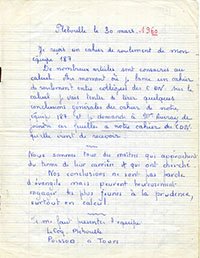 Pleboulle le 30 mars 1960
Je reçois un cahier de roulement de mon
équipe 187
De nombreux articles sont consacrés au
calcul. Au moment où je lance un cahier
de roulement entre collègues des CDN sur le
calcul je vais tenter de tirer quelques
conclusions générales du cahier de notre
équipe 187 et je demande à Mme
joindre ces feuilles à notre cahier de CDN
qu'elle vient de recevoir.
Nous sommes tous des maîtres qui approchent
du terme de leur carrière et qui ont cherché
Nos conclusions ne sont pas parole
d'évangile mais peuvent heureusement
engager les plus jeunes à la prudence,
surtout en calcul.
Pleboulle
Poisson à Tours